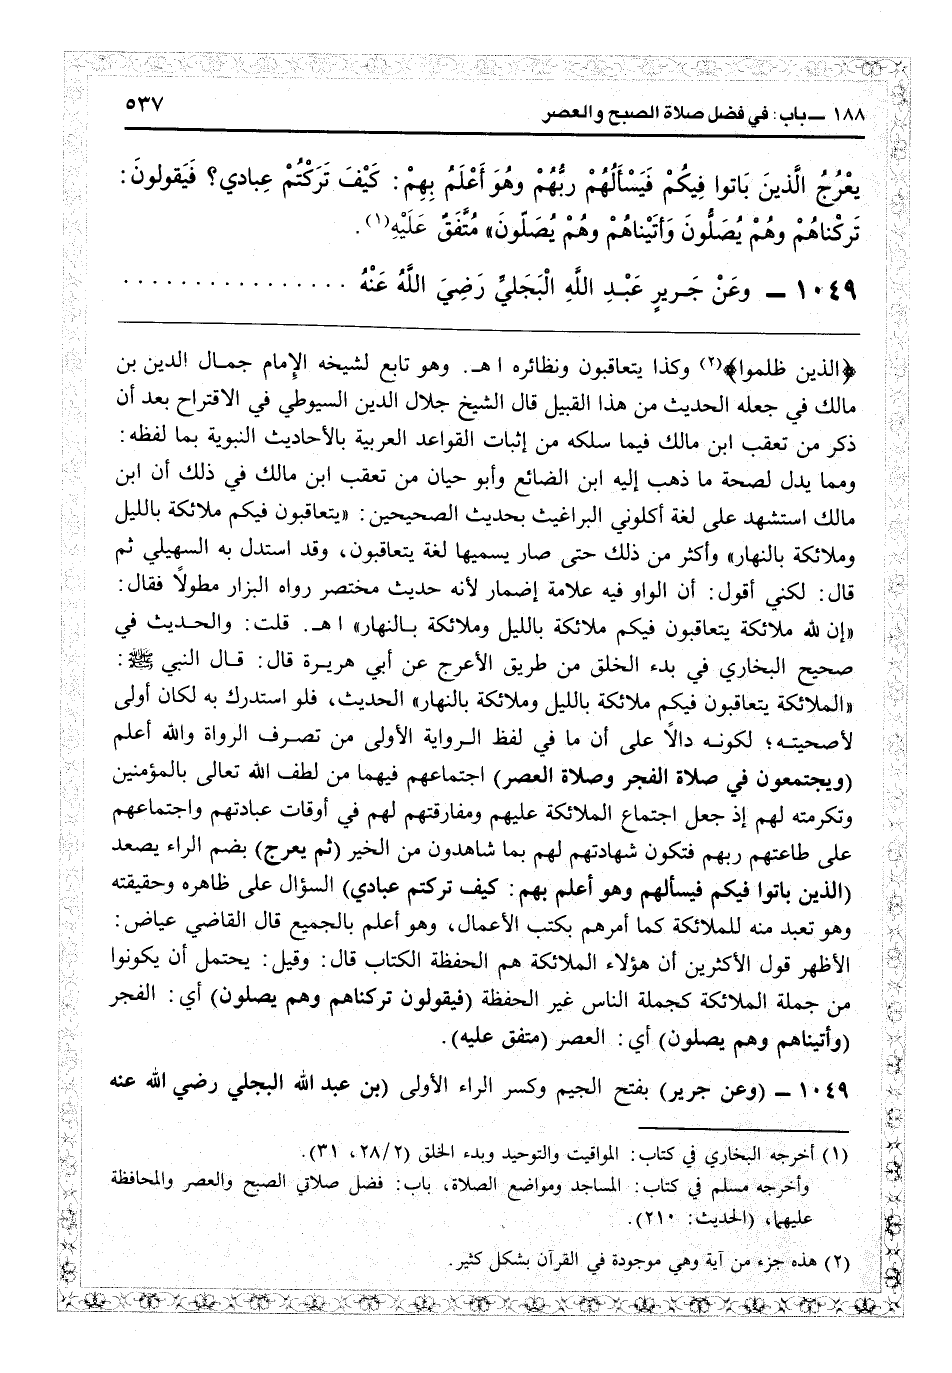 ١٨٨ ــ باب: في فضل صلاة الصبح والعصر ٥٣٧
يَعْرُجُ الَّذينَ بَاتوا فِيكُمْ فَيَسْأَلُهُمْ ربُّهُمْ وهُوَ أَعْلَمُ بِهِمْ: كَيْفَ تَرَكْتُمْ عِبادي؟ فَيَقولونَ:
تَركْناهُمْ وهُمْ يُصَلُّونَ وَأتَيْناهُمْ وهُمْ يُصَلّونَ» مُتَّفَقٌ عَلَيْهِ(١).
١٠٤٩ ــ وعَنْ جَـريرٍ عَبْـدِ اللَّهِ الْبَجَليِّ رَضِيَ اللَّهُ عَنْهُ . . . . . . . . . . . . . . . .
﴿الذين ظلموا﴾(٢) وكذا يتعاقبون ونظائره ا هـ. وهو تابع لشيخه الإمام جمـال الدين بن
مالك في جعله الحديث من هذا القبيل قال الشيخ جلال الدين السيوطي في الاقتراح بعد أن
ذكر من تعقب ابن مالك فيما سلكه من إثبات القواعد العربية بالأحاديث النبوية بما لفظه:
ومما يدل لصحة ما ذهب إليه ابن الضائع وأبو حيان من تعقب ابن مالك في ذلك أن ابن
مالك استشهد على لغة أكلوني البراغيث بحديث الصحيحين: «يتعاقبون فيكم ملائكة بالليل
وملائكة بالنهار» وأكثر من ذلك حتى صار يسميها لغة يتعاقبون، وقد استدل به السهيلي ثم
قال: لكني أقول: أن الواو فيه علامة إضمار لأنه حديث مختصر رواه البزار مطولاً فقال:
«إن لله ملائكة يتعاقبون فيكم ملائكة بالليل وملائكة بـالنهار» ا هـ. قلت: والحـديث في
صحيح البخاري في بدء الخلق من طريق الأعرج عن أبي هريـرة قال: قـال النبي ﷺ:
«الملائكة يتعاقبون فيكم ملائكة بالليل وملائكة بالنهار» الحديث، فلو استدرك به لكان أولى
لأصحيتـه؛ لكونـه دالاً على أن ما في لفظ الـرواية الأولى من تصـرف الرواة والله أعلم
(ويجتمعون في صلاة الفجر وصلاة العصر) اجتماعهم فيهما من لطف الله تعالى بالمؤمنين
وتكرمته لهم إذ جعل اجتماع الملائكة عليهم ومفارقتهم لهم في أوقات عبادتهم واجتماعهم
على طاعتهم ربهم فتكون شهادتهم لهم بما شاهدون من الخير (ثم يعرج) بضم الراء يصعد
(الذين باتوا فيكم فيسألهم وهو أعلم بهم: كيف تركتم عبادي) السؤال على ظاهره وحقيقته
وهو تعبد منه للملائكة كما أمرهم بكتب الأعمال، وهو أعلم بالجميع قال القاضي عياض:
الأظهر قول الأكثرين أن هؤلاء الملائكة هم الحفظة الكتاب قال: وقيل: يحتمل أن يكونوا
من جملة الملائكة كجملة الناس غير الحفظة (فيقولون تركناهم وهم يصلون) أي: الفجر
(وأتيناهم وهم يصلون) أي: العصر (متفق عليه).
١٠٤٩ ــ (وعن جرير) بفتح الجيم وكسر الراء الأولى (بن عبد الله البجلي رضي الله عنه
(١) أخرجه البخاري في كتاب: المواقيت والتوحيد وبدء الخلق (٢٨/٢، ٣١).
وأخرجه مسلم في كتاب: المساجد ومواضع الصلاة، باب: فضل صلاتي الصبح والعصر والمحافظة
عليهما، (الحديث: ٢١٠).
(٢) هذه جزء من آية وهي موجودة في القرآن بشكل كثير.